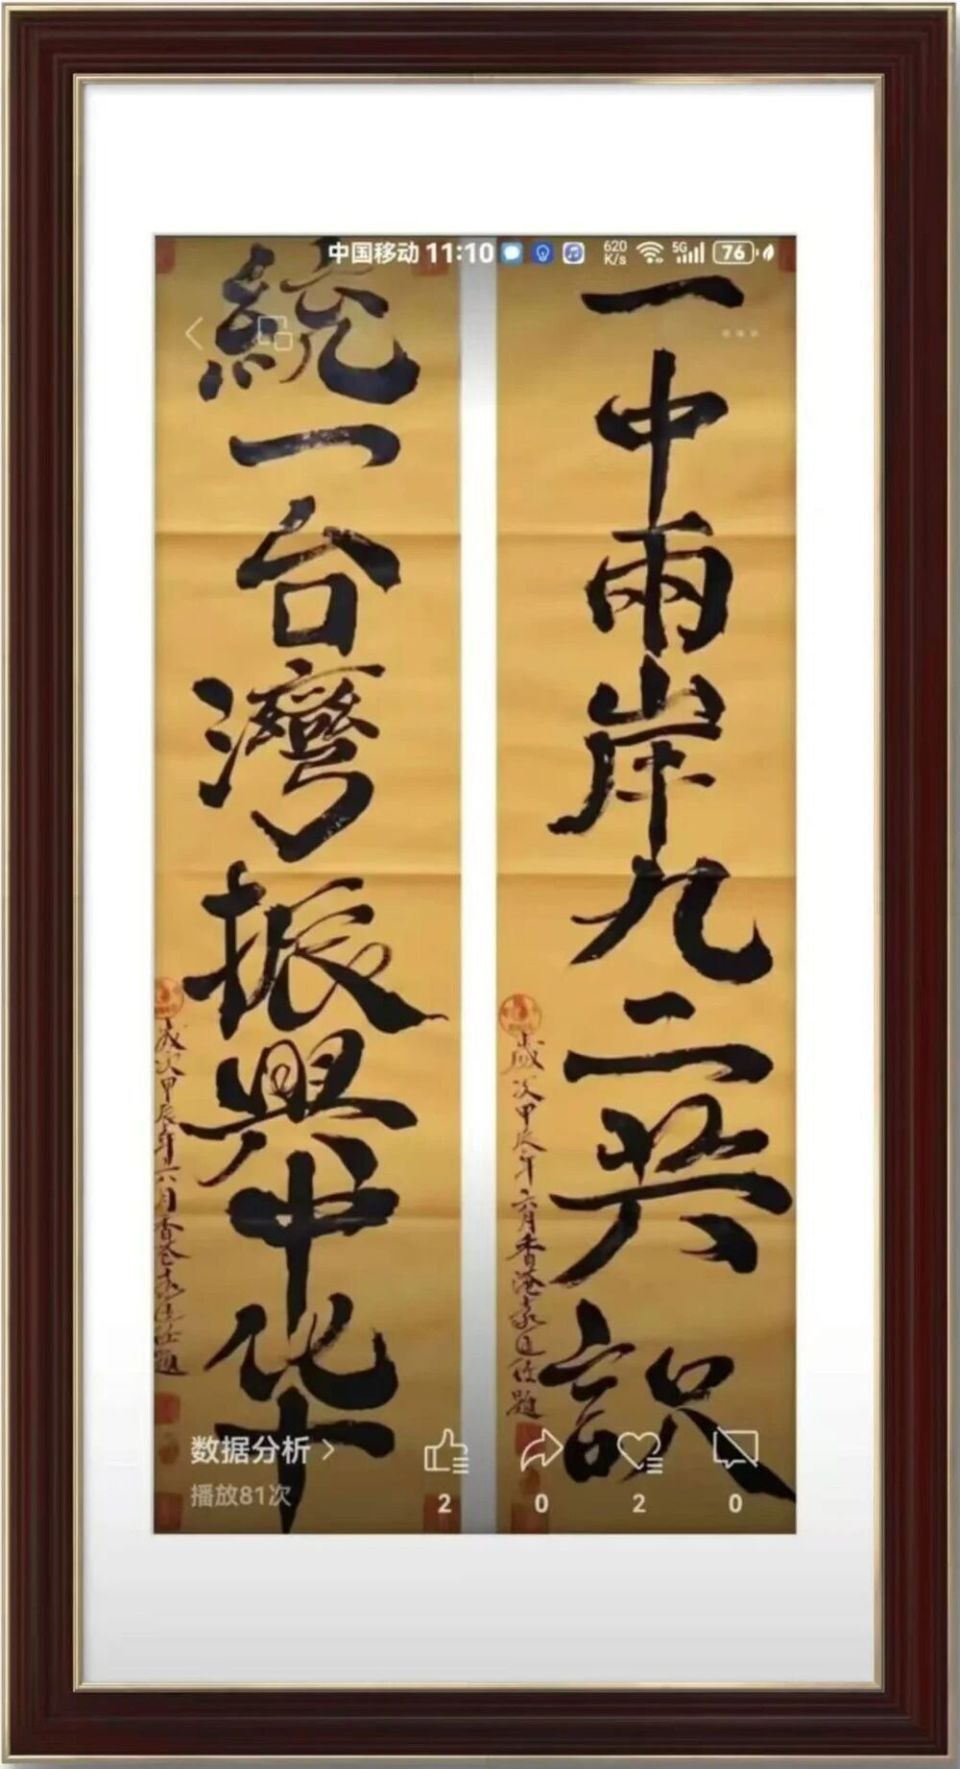 中国移动 11:10 620 K/s 5G 76
一中兩岸九二共識
歲次甲辰年六月香港袁
題
統一台灣振興中华
歲次甲辰年六月香港袁
題
数据分析 >
播放81次
2 0 2 0